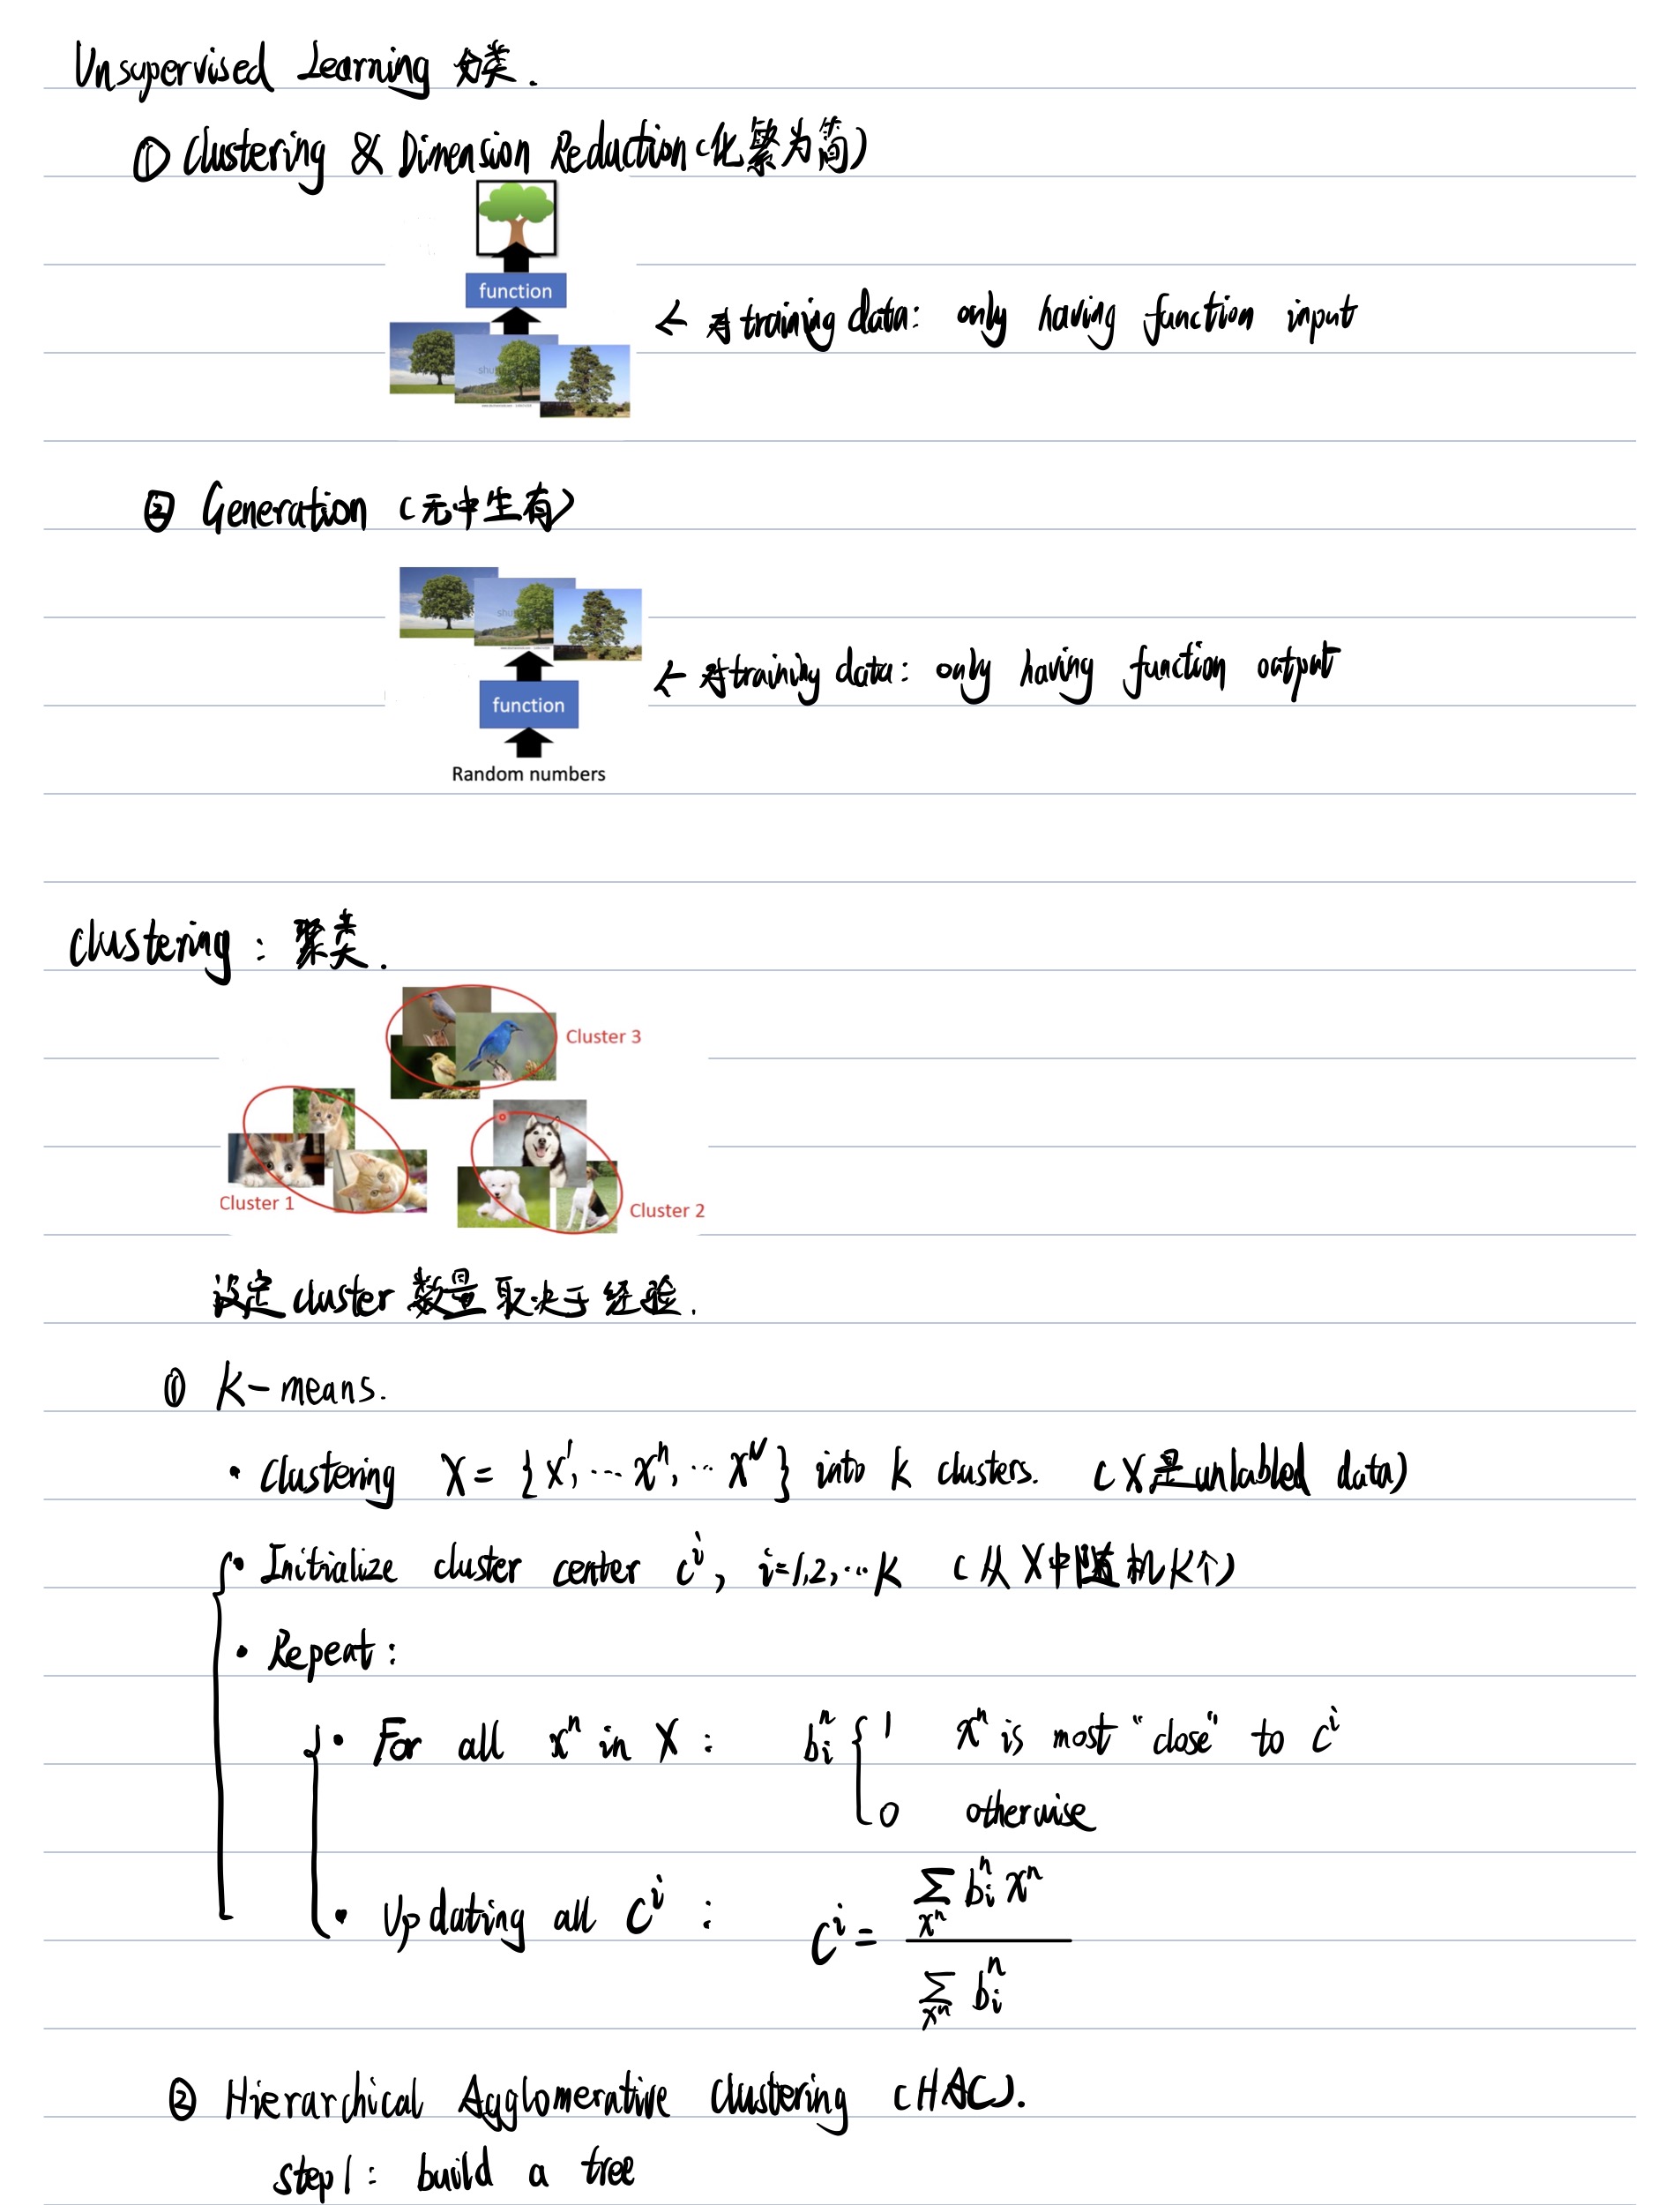 Unsupervised Learning 分类.
① Clustering & Dimension Reduction (化繁为简)
function
← 对training data: only having function input
② Generation (无中生有)
← 对training data: only having function output
function
Random numbers
Clustering: 聚类.
Cluster 3
Cluster 1
Cluster 2
设定 cluster 数量取决于经验.
① K-means.
• Clustering X = {x¹, ... xⁿ, ... xᴺ} into k clusters. (X是unlabled data)
• Initialize cluster center cⁱ, i=1,2,...K (从X中随机K个)
• Repeat:
• For all xⁿ in X: bᵢⁿ { 1 xⁿ is most "close" to cⁱ
0 otherwise
• Updating all cⁱ: cⁱ = ∑xⁿ bᵢⁿ xⁿ / ∑xⁿ bᵢⁿ
② Hierarchical Agglomerative Clustering (HAC).
step1: build a tree